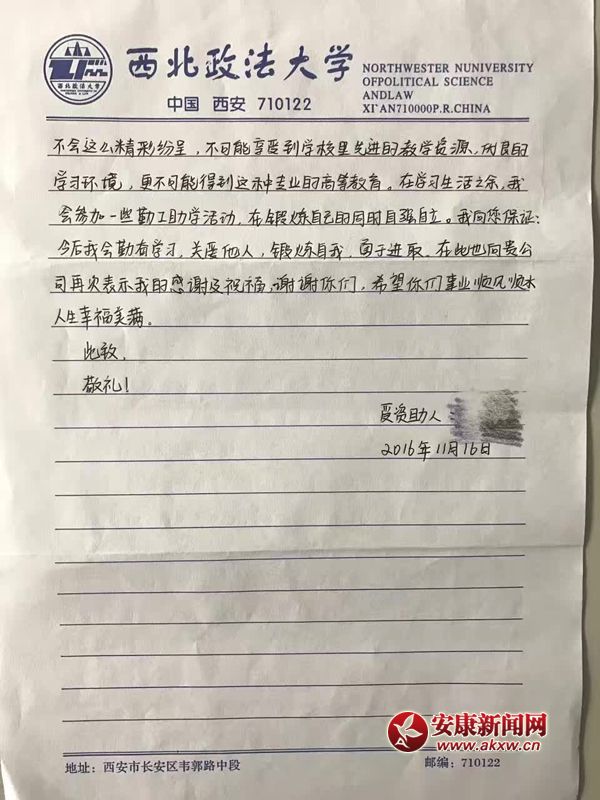 西北政法大学
NORTHWESTER NUNIVERSITY
OFPOLITICAL SCIENCE
ANDLAW
XI`AN710000P.R.CHINA
中国 西安 710122
西北政法大学
不会这么精彩纷呈，不可能享受到学校里先进的教学资源、优良的
学习环境，更不可能得到这种专业的高等教育。在学习生活之余，我
会参加一些勤工助学活动，在锻炼自己的同时自强自立。我向您保证：
今后我会勤奋学习，关爱他人，锻炼自我，勇于进取。在此也向贵公
司再次表示我的感谢及祝福，谢谢你们，希望你们事业顺风顺水
人生幸福美满。
此致，
敬礼！
受资助人
2016年11月16日
安康新闻网
www.akxw.cn
地址：西安市长安区韦郭路中段
邮编：710122